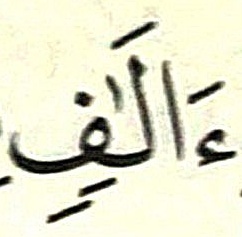 ءَالَٰفٍ